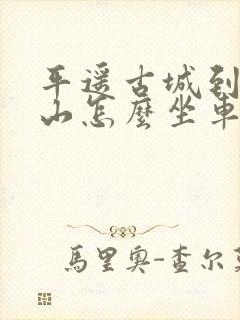 平遥古城到
山怎麼坐車
馬里奧-查尔